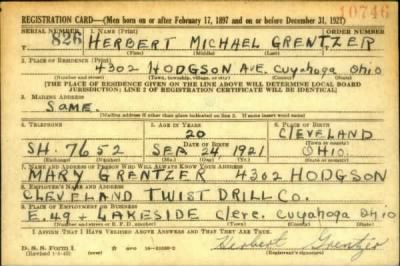 REGISTRATION CARD—(Men born on or after February 17, 1897 and on or before December 31, 1921)
10746
SERIAL NUMBER 1. NAME (Print) ORDER NUMBER
826 HERBERT MICHAEL GRENTZER
(First) (Middle) (Last)
2. PLACE OF RESIDENCE (Print)
4302 HODGSON AVE. Cuyahoga Ohio
(Number and street) (Town, township, village, or city) (County) (State)
[THE PLACE OF RESIDENCE GIVEN ON THE LINE ABOVE WILL DETERMINE LOCAL BOARD
JURISDICTION; LINE 2 OF REGISTRATION CERTIFICATE WILL BE IDENTICAL]
3. MAILING ADDRESS
SAME.
[Mailing address if other than place indicated on line 2. If same insert word same]
4. TELEPHONE 5. AGE IN YEARS 6. PLACE OF BIRTH
20 CLEVELAND
DATE OF BIRTH (Town or county)
SH. 7652 SEP 24 1921 OHIO.
(Exchange) (Number) (Mo.) (Day) (Yr.) (State or country)
7. NAME AND ADDRESS OF PERSON WHO WILL ALWAYS KNOW YOUR ADDRESS
MARY GRENTZER 4302 HODGSON
8. EMPLOYER'S NAME AND ADDRESS
CLEVELAND TWIST DRILL Co.
9. PLACE OF EMPLOYMENT OR BUSINESS
E. 49 + LAKESIDE Cleve. Cuyahoga Ohio
(Number and street or R. F. D. number) (Town) (County) (State)
I AFFIRM THAT I HAVE VERIFIED ABOVE ANSWERS AND THAT THEY ARE TRUE.
D. S. S. Form 1
Herbert Grentzer